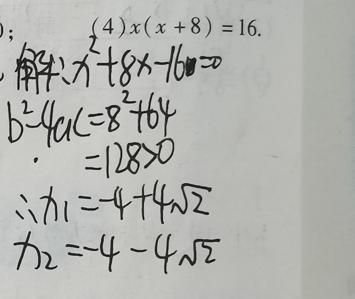 ); (4)x(x+8)=16.
解:x²+8x-16=0
b²-4ac=8²+64
=128>0
∴x₁=-4+4√2
x₂=-4-4√2